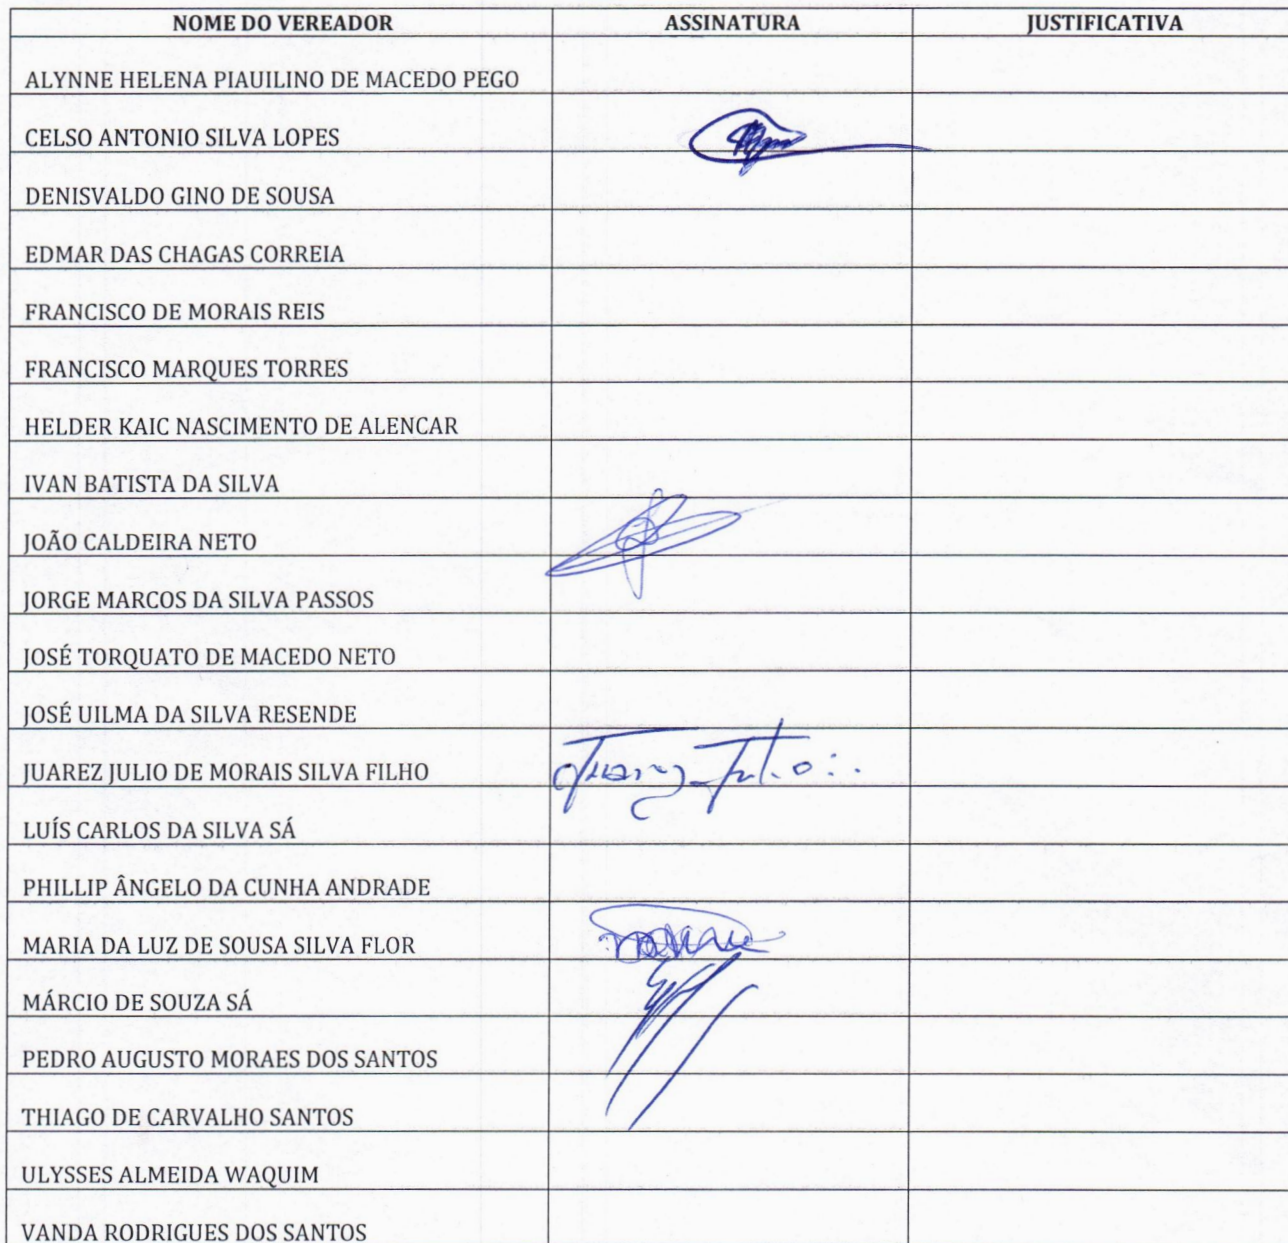 NOME DO VEREADOR ASSINATURA JUSTIFICATIVA
ALYNNE HELENA PIAUILINO DE MACEDO PEGO
CELSO ANTONIO SILVA LOPES
DENISVALDO GINO DE SOUSA
EDMAR DAS CHAGAS CORREIA
FRANCISCO DE MORAIS REIS
FRANCISCO MARQUES TORRES
HELDER KAIC NASCIMENTO DE ALENCAR
IVAN BATISTA DA SILVA
JOÃO CALDEIRA NETO
JORGE MARCOS DA SILVA PASSOS
JOSÉ TORQUATO DE MACEDO NETO
JOSÉ UILMA DA SILVA RESENDE
JUAREZ JULIO DE MORAIS SILVA FILHO Juarez Julio
LUÍS CARLOS DA SILVA SÁ
PHILLIP ÂNGELO DA CUNHA ANDRADE
MARIA DA LUZ DE SOUSA SILVA FLOR
MÁRCIO DE SOUZA SÁ
PEDRO AUGUSTO MORAES DOS SANTOS
THIAGO DE CARVALHO SANTOS
ULYSSES ALMEIDA WAQUIM
VANDA RODRIGUES DOS SANTOS